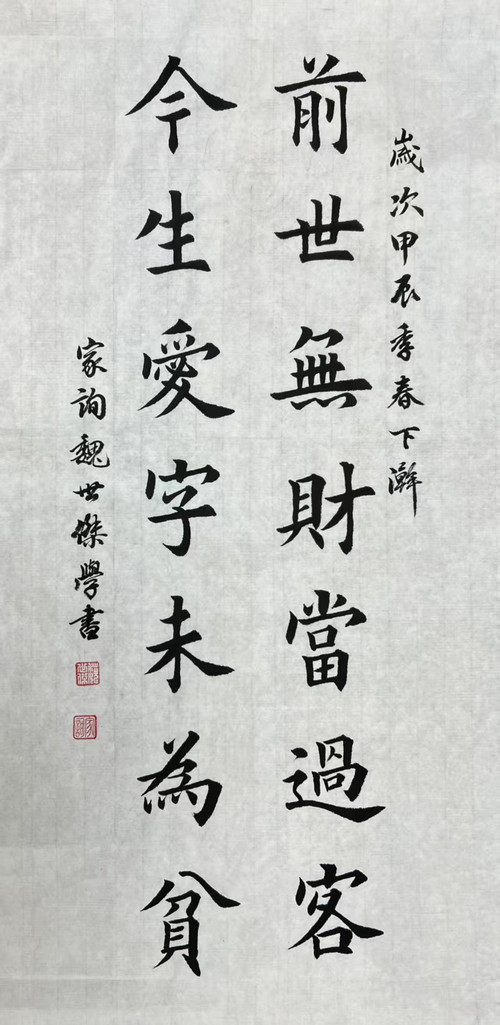 歲次甲辰季春下澣
前世無財當過客
今生愛字未為貧
家詢魏世傑學書